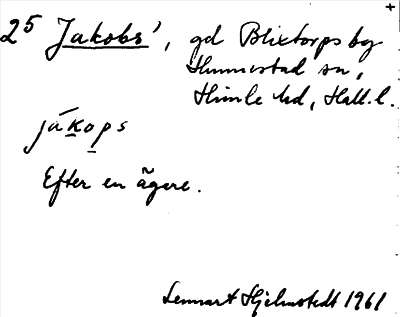 25 Jakobs', gd Blixtorps by
Hunnestad sn,
Himle hd, Hall. l.
jákops
Efter en ägare.
Lennart Hjelmstedt 1961